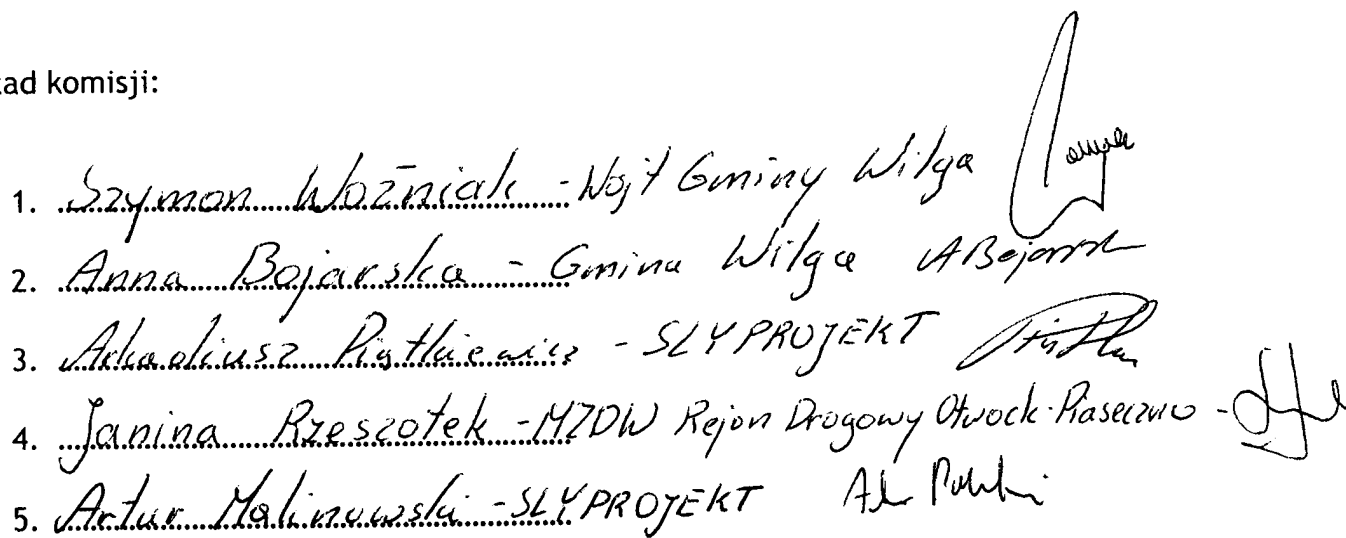 ad komisji:
1. Szymon Woźniak - Wójt Gminy Wilga
2. Anna Bojarska - Gmina Wilga ABojarsk
3. Arkadiusz Piątkiewicz - SLYPROJEKT
4. Janina Rzeszotek - MZDW Rejon Drogowy Otwock-Piaseczno -
5. Artur Malinowski - SLYPROJEKT